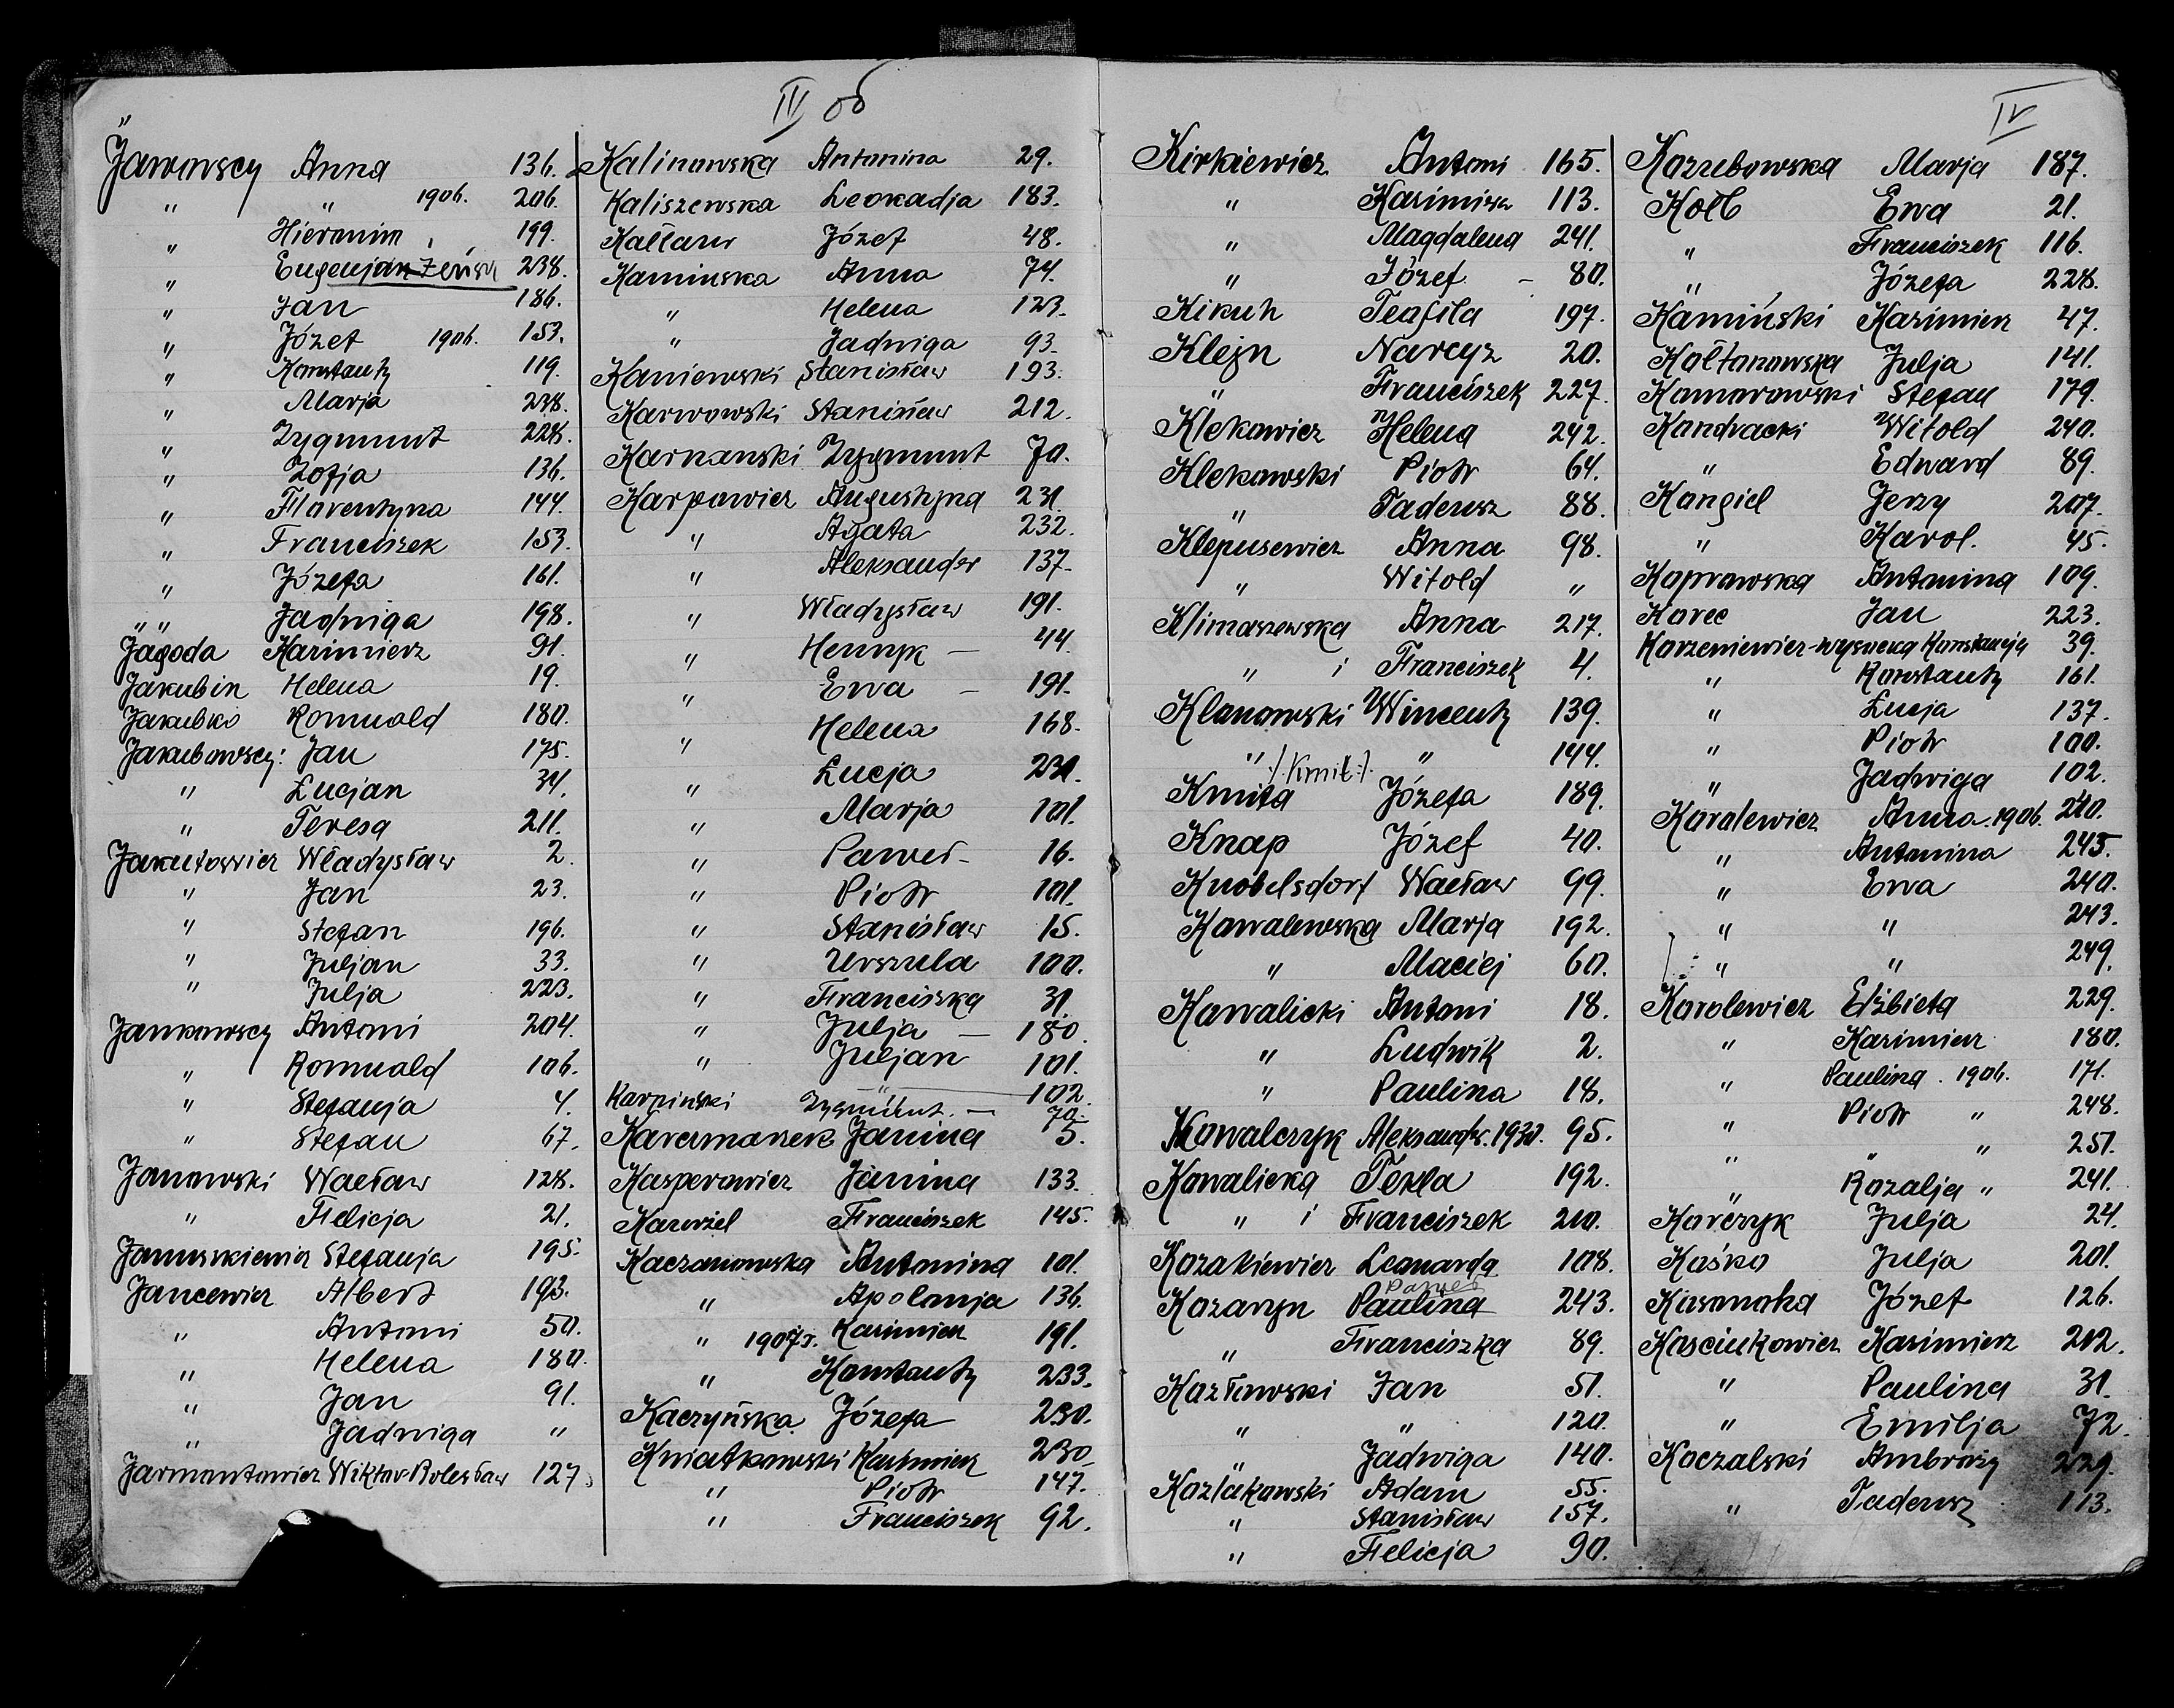 III об
Jaworscy Anna 136.
" " 1906. 206.
" Hieronim 199.
" Eugenjan 238.
" Jan 186.
" Józef 1906. 153.
" Konstanty 119.
" Marja 238.
" Zygmunt 228.
" Zofja 136.
" Florentyna 144.
" Franciszek 153.
" Józefa 161.
" " Jadwiga 198.
Jagoda Kazimierz 91.
Jakubin Helena 19.
Jakubko Romuald 180.
Jakubowscy: Jan 175.
" Lucjan 34.
" Teresa 211.
Jakutowicz Władysław 2.
" Jan 23.
" Stefan 196.
" Juljan 33.
" Julja 223.
Jankowscy Antoni 204.
" Romuald 106.
" Stefanja 4.
" Stefan 67.
Janowski Wacław 128.
" Felicja 21.
Januszkiewicz Stefanja 195.
Jancewicz Albert 193.
" Antoni 50.
" Helena 180.
" Jan 91.
" Jadwiga "
Jarmontowicz Wiktor-Bolesław 127.
Kalinowska Antonina 29.
Kaliszewska Leokadja 183.
Kałłaur Józef 48.
Kaminska Anna 74.
" Helena 123.
" Jadwiga 93.
Kaniewski Stanisław 193.
Karwowski Stanisław 212.
Karnanski Zygmunt 70.
Karpowicz Augustyna 231.
" Agata 232.
" Aleksander 137.
" Władysław 191.
" Henryk — 44.
" Ewa — 191.
" Helena 168.
" Łucja 231.
" Marja 101.
" Paweł - 16.
" Piotr 101.
" Stanisław 15.
" Urszula 100.
" Franciszka 31.
" Julja — 180.
" Juljan 101.
" 102.
Karpinski Zygmunt. — 70.
Karczmarzek Janina 5.
Kasperowicz Janina 133.
Kaurziel Franciszek 145.
Kaczanowska Antonina 101.
" Apolonja 136.
" 1907r. Kazimierz 191.
" Konstanty 233.
Kaczyńska Józefa 230.
Kwiatkowski Kazimierz 230.
" Piotr 147.
" Franciszek 92.
IV
Kirkiewicz Antoni 165.
" Kazimiera 113.
" Magdalena 241.
" Józef - 80.
Kikuh Teofila 197.
Klejn Narcyz 20.
" Franciszek 227.
Klekowicz Helena 242.
Klekowski Piotr 64.
" Tadeusz 88.
Klepusewicz Anna 98.
" Witold "
Klimaszewska Anna 217.
" i Franciszek 4.
Klonowski Wincenty 139.
" " 144.
/:Kmit:/.
Kmita Józefa 189.
Knap Józef 40.
Knobelsdorf Wacław 99.
Kowalewska Marja 192.
" Maciej 60.
Kowalicki Antoni 18.
" Ludwik 2.
" Paulina 18.
Kowalczyk Aleksandr. 1930. 95.
Kowalicka Tekla 192.
" i Franciszek 210.
Kozakiewicz Leonarda 108.
Paweł
Kozaryn Paulina 243.
" Franciszka 89.
Kozłowski Jan 51.
" " 120.
" Jadwiga 140.
Kozłakowski Adam 55.
" Stanisław 157.
" Felicja 90.
Kozubowska Marja 187.
Kolb Ewa 21.
" Franciszek 116.
" Józefa 228.
Kamiński Kazimierz 47.
Kołtanowska Julja 141.
Komarowski Stefan 179.
Kondracki Witold 240.
" Edward 89.
Kongiel Jerzy 207.
" Karol. 45.
Koprowska Antonina 109.
Korec Jan 223.
Korzeniewicz-Wysocka Konstancja 39.
" Konstanty 161.
" Łucja 137.
" Piotr 100.
" Jadwiga 102.
Korolewicz Anna. 1906. 240.
" Antonina 245.
" Ewa 240.
" " 243.
" " 249.
Korolewicz Elżbieta 229.
" Kazimierz 180.
" Paulina. 1906. 171.
" Piotr " 248.
" " " 251.
" Rozalja " 241.
Korczyk Julja 24.
Kośko Julja 201.
Kosonoha Józef 126.
Kosciukowicz Kazimierz 212.
" Paulina 31.
" Emilja 72.
Koczalski Ambroży 229.
" Tadeusz 113.